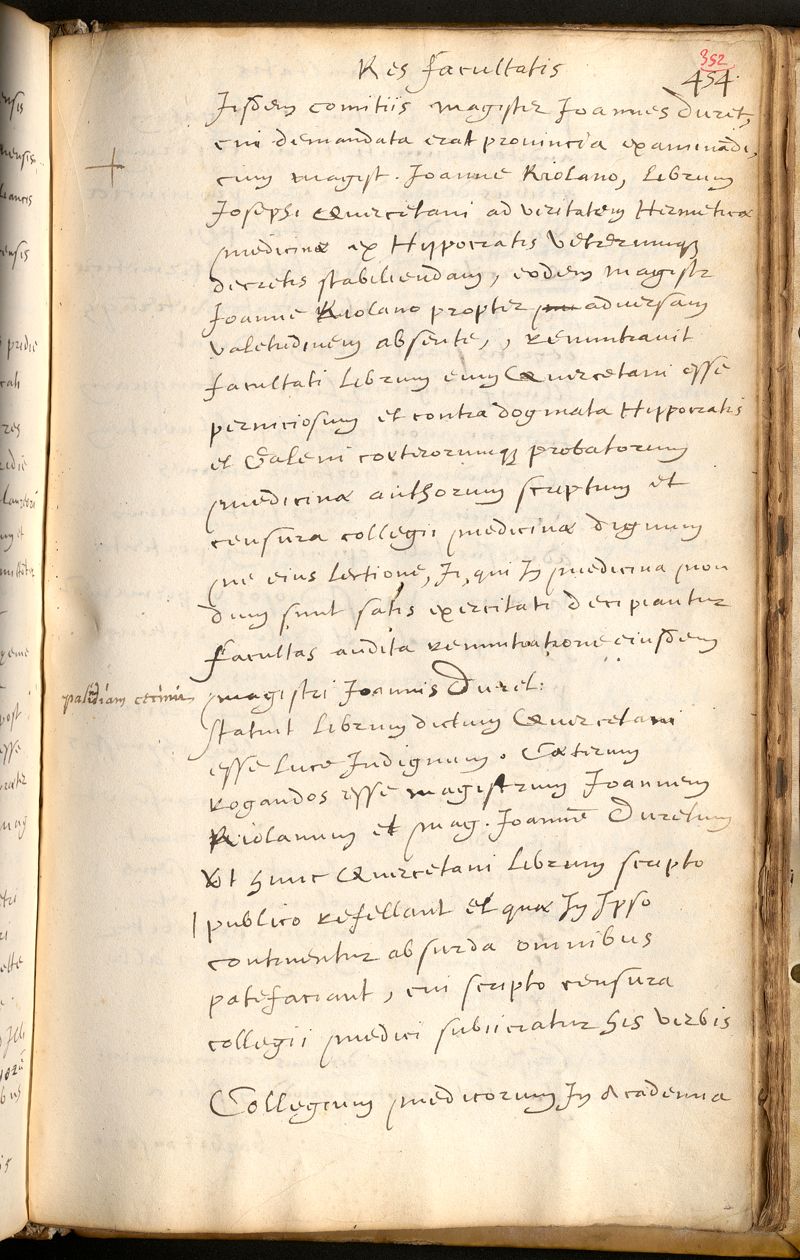 352
Res facultatis 454.
Iisdem comitiis magister Joannes Duret,
cui demandata erat provincia examinādi,
cum magist. Joanne Riolano, librum
Josephi Quercetani ad veritatem Hermeticæ
medicinæ ex Hyppocratis veterumq;
decretis stabiliendam, eodem magistr
Joanne Riolano propter adversam
valetudinem absente,, renuntiavit
facultati librum eum Quercetani esse
perniciosum et contra dogmata Hippocratis
et Galeni cœterorumq; probatorum
medicinæ authorum scriptum et
censura collegii medicinæ dignum
ne eius lectione, Ii, qui In medicina non
dum sunt satis exercitati decipiantur
facultas audita renuntiatione eiusdem
magistri Joannis Duret:
statuit librum dictum Quercetani
esse luce Indignum. Cæterum
rogandos esse magistrum Joannem
Riolanum et mag. Joannē Duretum
Vt hunc Quercetani librum scripto
publico refellant et quæ In Ipso
continentur absurda omnibus
patefaciant, cui scripto censura
collegii medici subiiciatur his verbis
Collegium medicorum In Academia